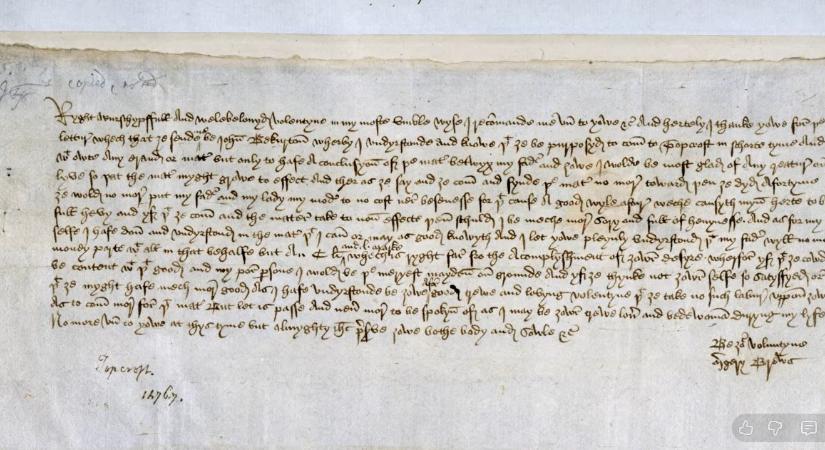 copied
Ryght wurschypffull and welebelovyd Volentyne in my moste umble wyse I recōmande me un to yowe &c And hertely I thanke yowe for
lettur whech that ye sende me be John Bekurton wherby I undyrstonde and knowe þt ye be purposyd to com to Topcroft in schorte tyme And
wt owte any erand or mater but only to hafe a conclusyon of þe mater betwyx my fader and yowe I wolde be most glad of any creature on
lyve so þat the mater myght growe to effect And ther as ye say and ye com and fynde þe mater no more toward þen ye dyd afortyme
ye wold no more put my fader and my lady my moder to no cost ner besenesse for þt cause a good wyle aftyr weche causyth myn herte to b
full hevy and yf þt ye com and the mater take to non effecte þen schuld I be meche more sory and full of hevynesse And as for my
selfe I hafe don and undyrstond in the mater þt I can or may as good knowyth And I let yowe pleynly undyrstond þt my fader wyll no mo
money parte wt all in that behalfe but an C li and l marke whech is ryght far fro the acomplyshment of yowr desyre wherfor yf þt ye cowd
be content wt þt good and my por persone I wold be þe meryest mayden on grounde And yf ye thynke not yowr selfe so satysfyed or
þt ye myght hafe mech more good as I hafe undyrstonde be yowe afor good trewe and lovyng volentyne þt ye take no such labur uppon yow
as to com more for þt mater But let is passe and never more to be spokyn of as I may be yowr trewe lover and bedewoman duryng my lyfe
No more un to yowe at thys tyme but almyghty Jhc preserve yowe bothe body and sowle &c
Be yowr Voluntyne
Mergery Brews
Topcroft.
1476/7.